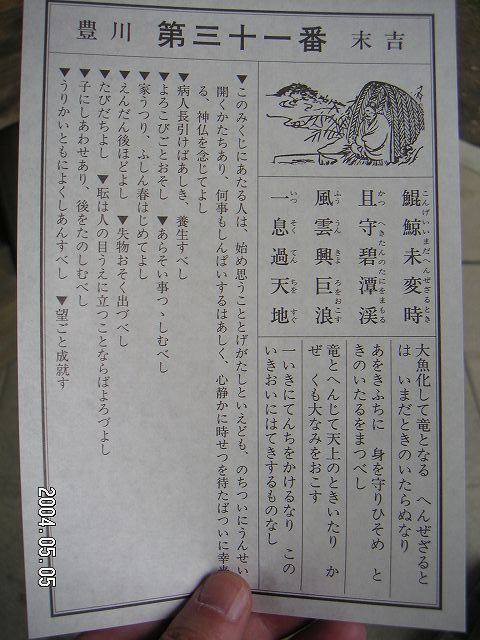 豊川 第三十一番 末吉
鯤鯨未変時
こんげいいまだへんぜざるとき
且守碧潭渓
かつへきたんのたにをまもる
風雲興巨浪
ふううんきよろをおこす
一息過天地
いつそくてんちをすぐ
大魚化して竜となる へんぜざると
は いまだときのいたらぬなり
あをきふちに 身を守りひそめ と
きのいたるをまつべし
竜とへんじて天上のときいたり か
ぜ くも大なみをおこす
一いきにてんちをかけるなり この
いきおいにはてきするものなし
▼このみくじにあたる人は、始め思うこととげがたしといえども、のちついにうんせい
開くかたちあり、何事もしんぱいするはあしく、心静かに時せつを待たばついに幸
る、神仏を念じてよし
▼病人長引けばあしき、養生すべし
▼よろこびごとおそし ▼あらそい事つゝしむべし
▼家うつり、ふしん春はじめてよし
▼えんだん後ほどよし ▼失物おそく出づべし
▼たびだちよし ▼は人の目うえに立つことならばよろづよし
▼子にしあわせあり、後をたのしむべし
▼うりかいともによくしあんすべし ▼望ごと成就す
2004.05.05